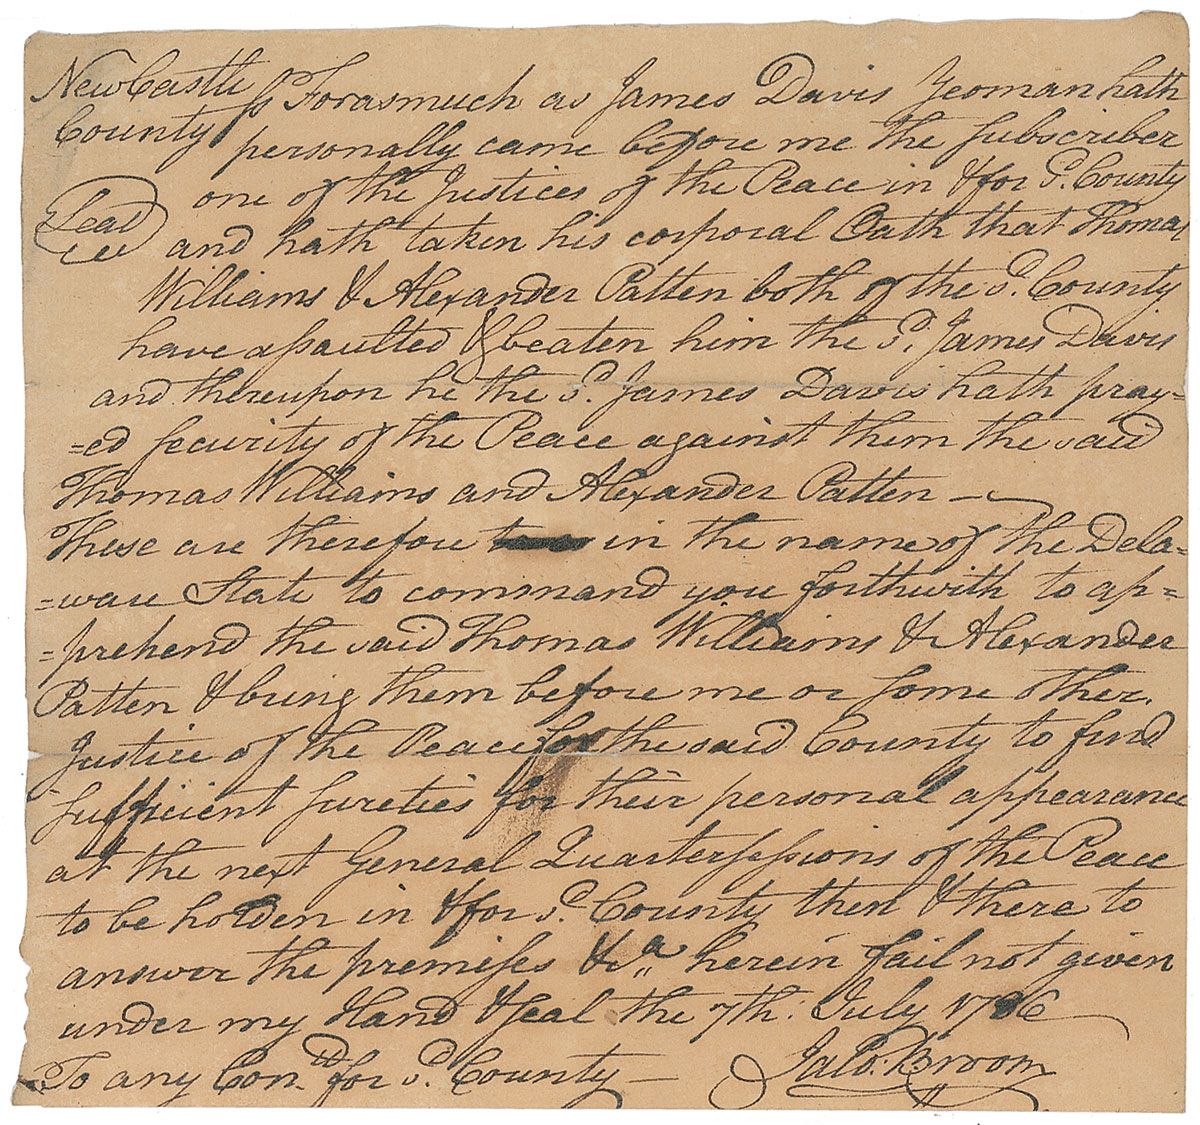 NewCastle
County ss Forasmuch as James Davis Yeoman hath
personally came before me the subscriber
one of the Justices of the Peace in & for sd. County
Seal
and hath taken his corporal Oath that Thomas
Williams & Alexander Patten both of the sd. County
have assaulted & beaten him the sd. James Davis
and thereupon he the sd. James Davis hath pray=
=ed security of the Peace against them the said
Thomas Williams and Alexander Patten —
These are therefore in the name of the Dela=
=ware State to command you forthwith to ap=
=prehend the said Thomas Williams & Alexander
Patten & bring them before me or some other
Justice of the Peace for the said County to find
sufficient sureties for their personal appearance
at the next General Quartersessions of the Peace
to be holden in & for sd. County then & there to
answer the premises &a herein fail not given
under my Hand & seal the 7th: July 1786
To any Con.  for sd. County — Jaco. Broom